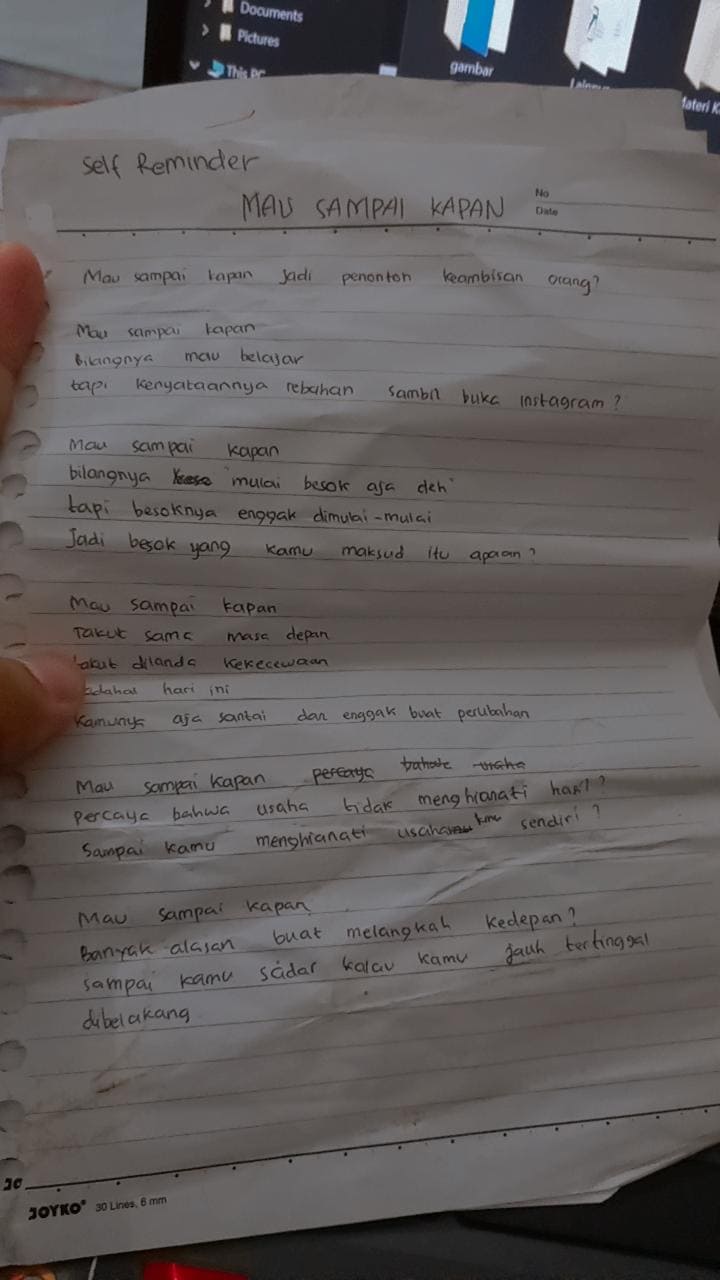 Documents
Pictures
This PC
gambar
Self Reminder
MAU SAMPAI KAPAN
No
Date
Mau sampai kapan Jadi penonton keambisan orang?
Mau sampai kapan
Bilangnya mau belajar
tapi kenyataannya rebahan sambil buka instagram?
Mau sampai kapan
bilangnya "mulai besok aja deh"
tapi besoknya enggak dimulai-mulai
Jadi besok yang kamu maksud itu apaan?
Mau sampai kapan
Takut sama masa depan
takut dilanda kekecewaan
adahal hari ini
kamunya aja santai dan enggak buat perubahan
Mau sampai kapan percaya bahwa usaha
percaya bahwa usaha tidak menghianati hasil?
Sampai kamu menghianati usaha kmu sendiri?
Mau sampai kapan
Banyak alasan buat melangkah kedepan?
sampai kamu sadar kalau kamu jauh tertinggal
dibelakang
30
JOYKO 30 Lines, 6 mm